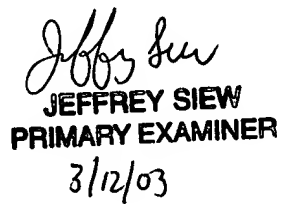 Jeffrey Siew
JEFFREY SIEW
PRIMARY EXAMINER
3/12/03